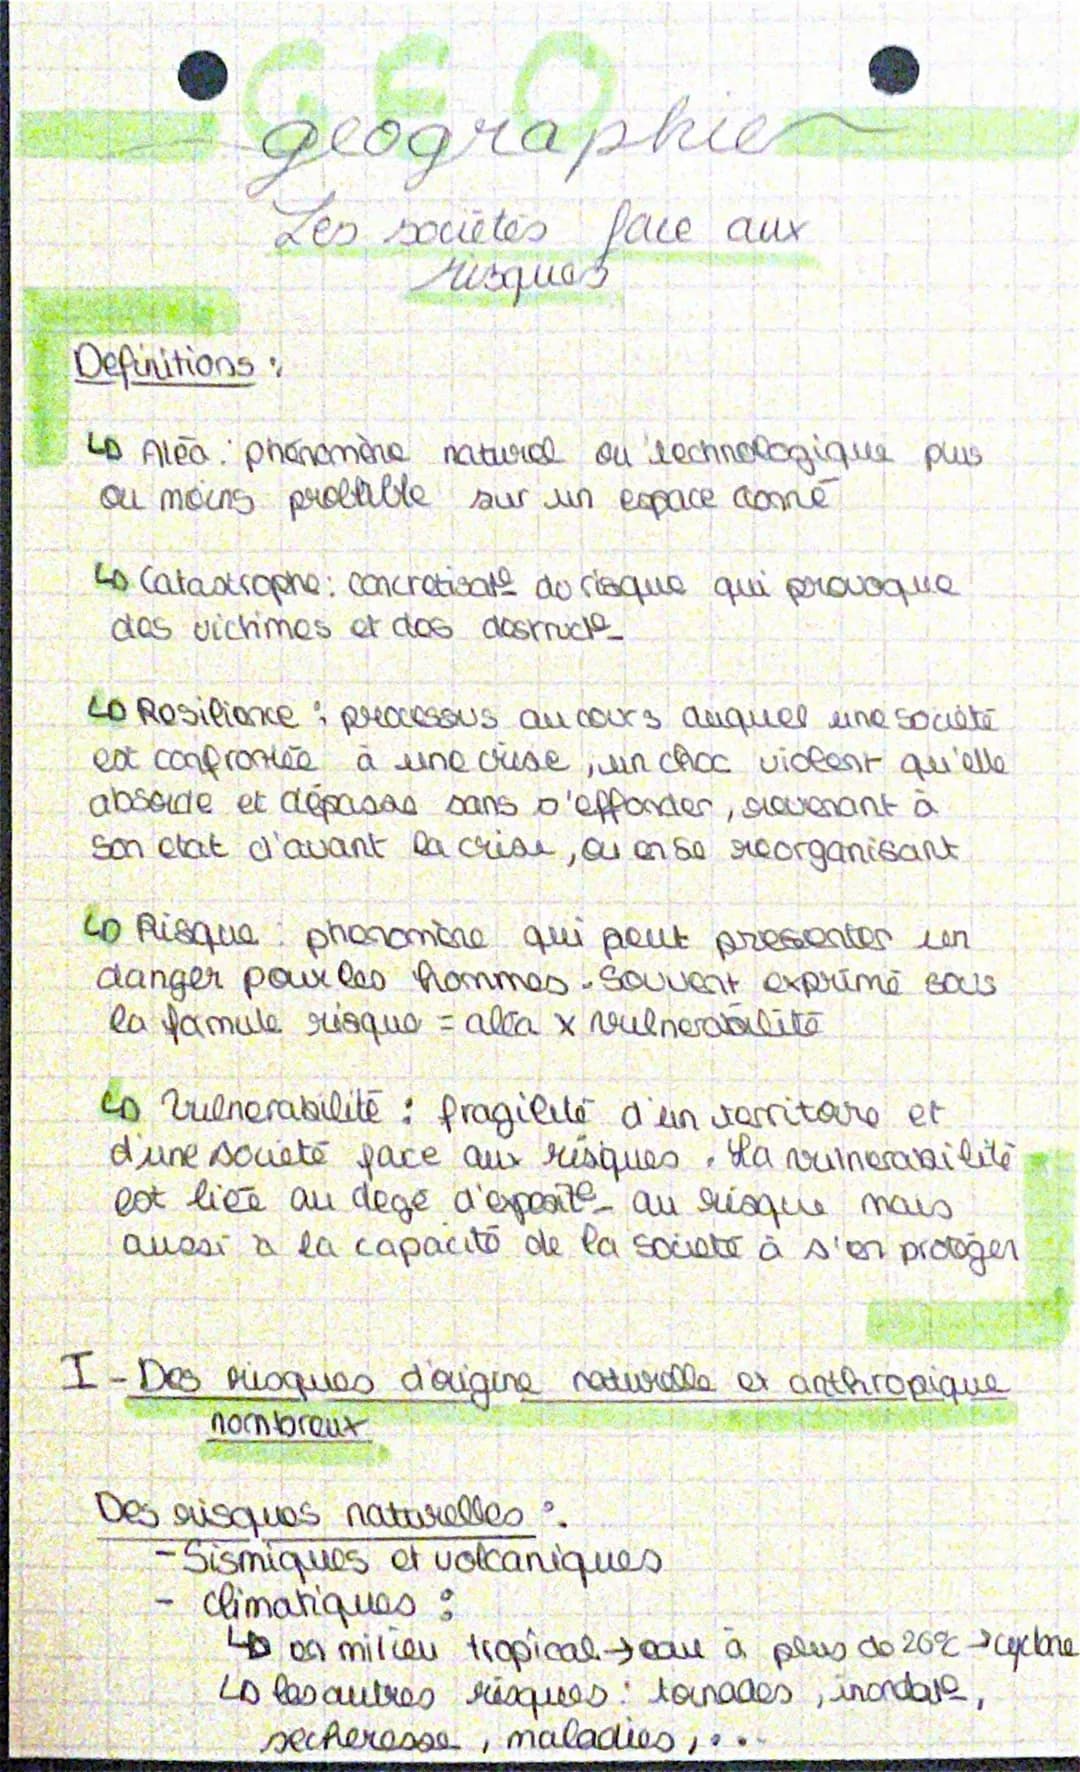 GEO
géographie
Les sociétés face aux
risques
Définitions :
↳ Aléa : phénomène naturel ou technologique plus
ou moins probable sur un espace donné
↳ Catastrophe : concrétisat° du risque qui provoque
des victimes et des destruct°
↳ Résilience : processus au cours duquel une société
est confrontée à une crise, un choc violent qu'elle
absorde et dépasse sans s'effonder, revenant à
son etat d'avant la crise, ou en se réorganisant
↳ Risque : phenomène qui peut présenter un
danger pour les hommes. Souvent exprimé sous
la famule risque = aléa x vulnérabilité
↳ Vulnérabilité : fragilité d'un territoire et
d'une société face aux risques. La vulnérabilité
est liée au degé d'exposit° au risque mais
aussi à la capacité de la société à s'en protéger
I - Des risques d'origine naturelle et anthropique
nombreux
Des risques naturelles :
- Sismiques et volcaniques
- climatiques :
↳ en milieu tropical → eau à plus de 26°C → cyclone
↳ les autres risques : tornades, inondat°,
secheresse, maladies, ...